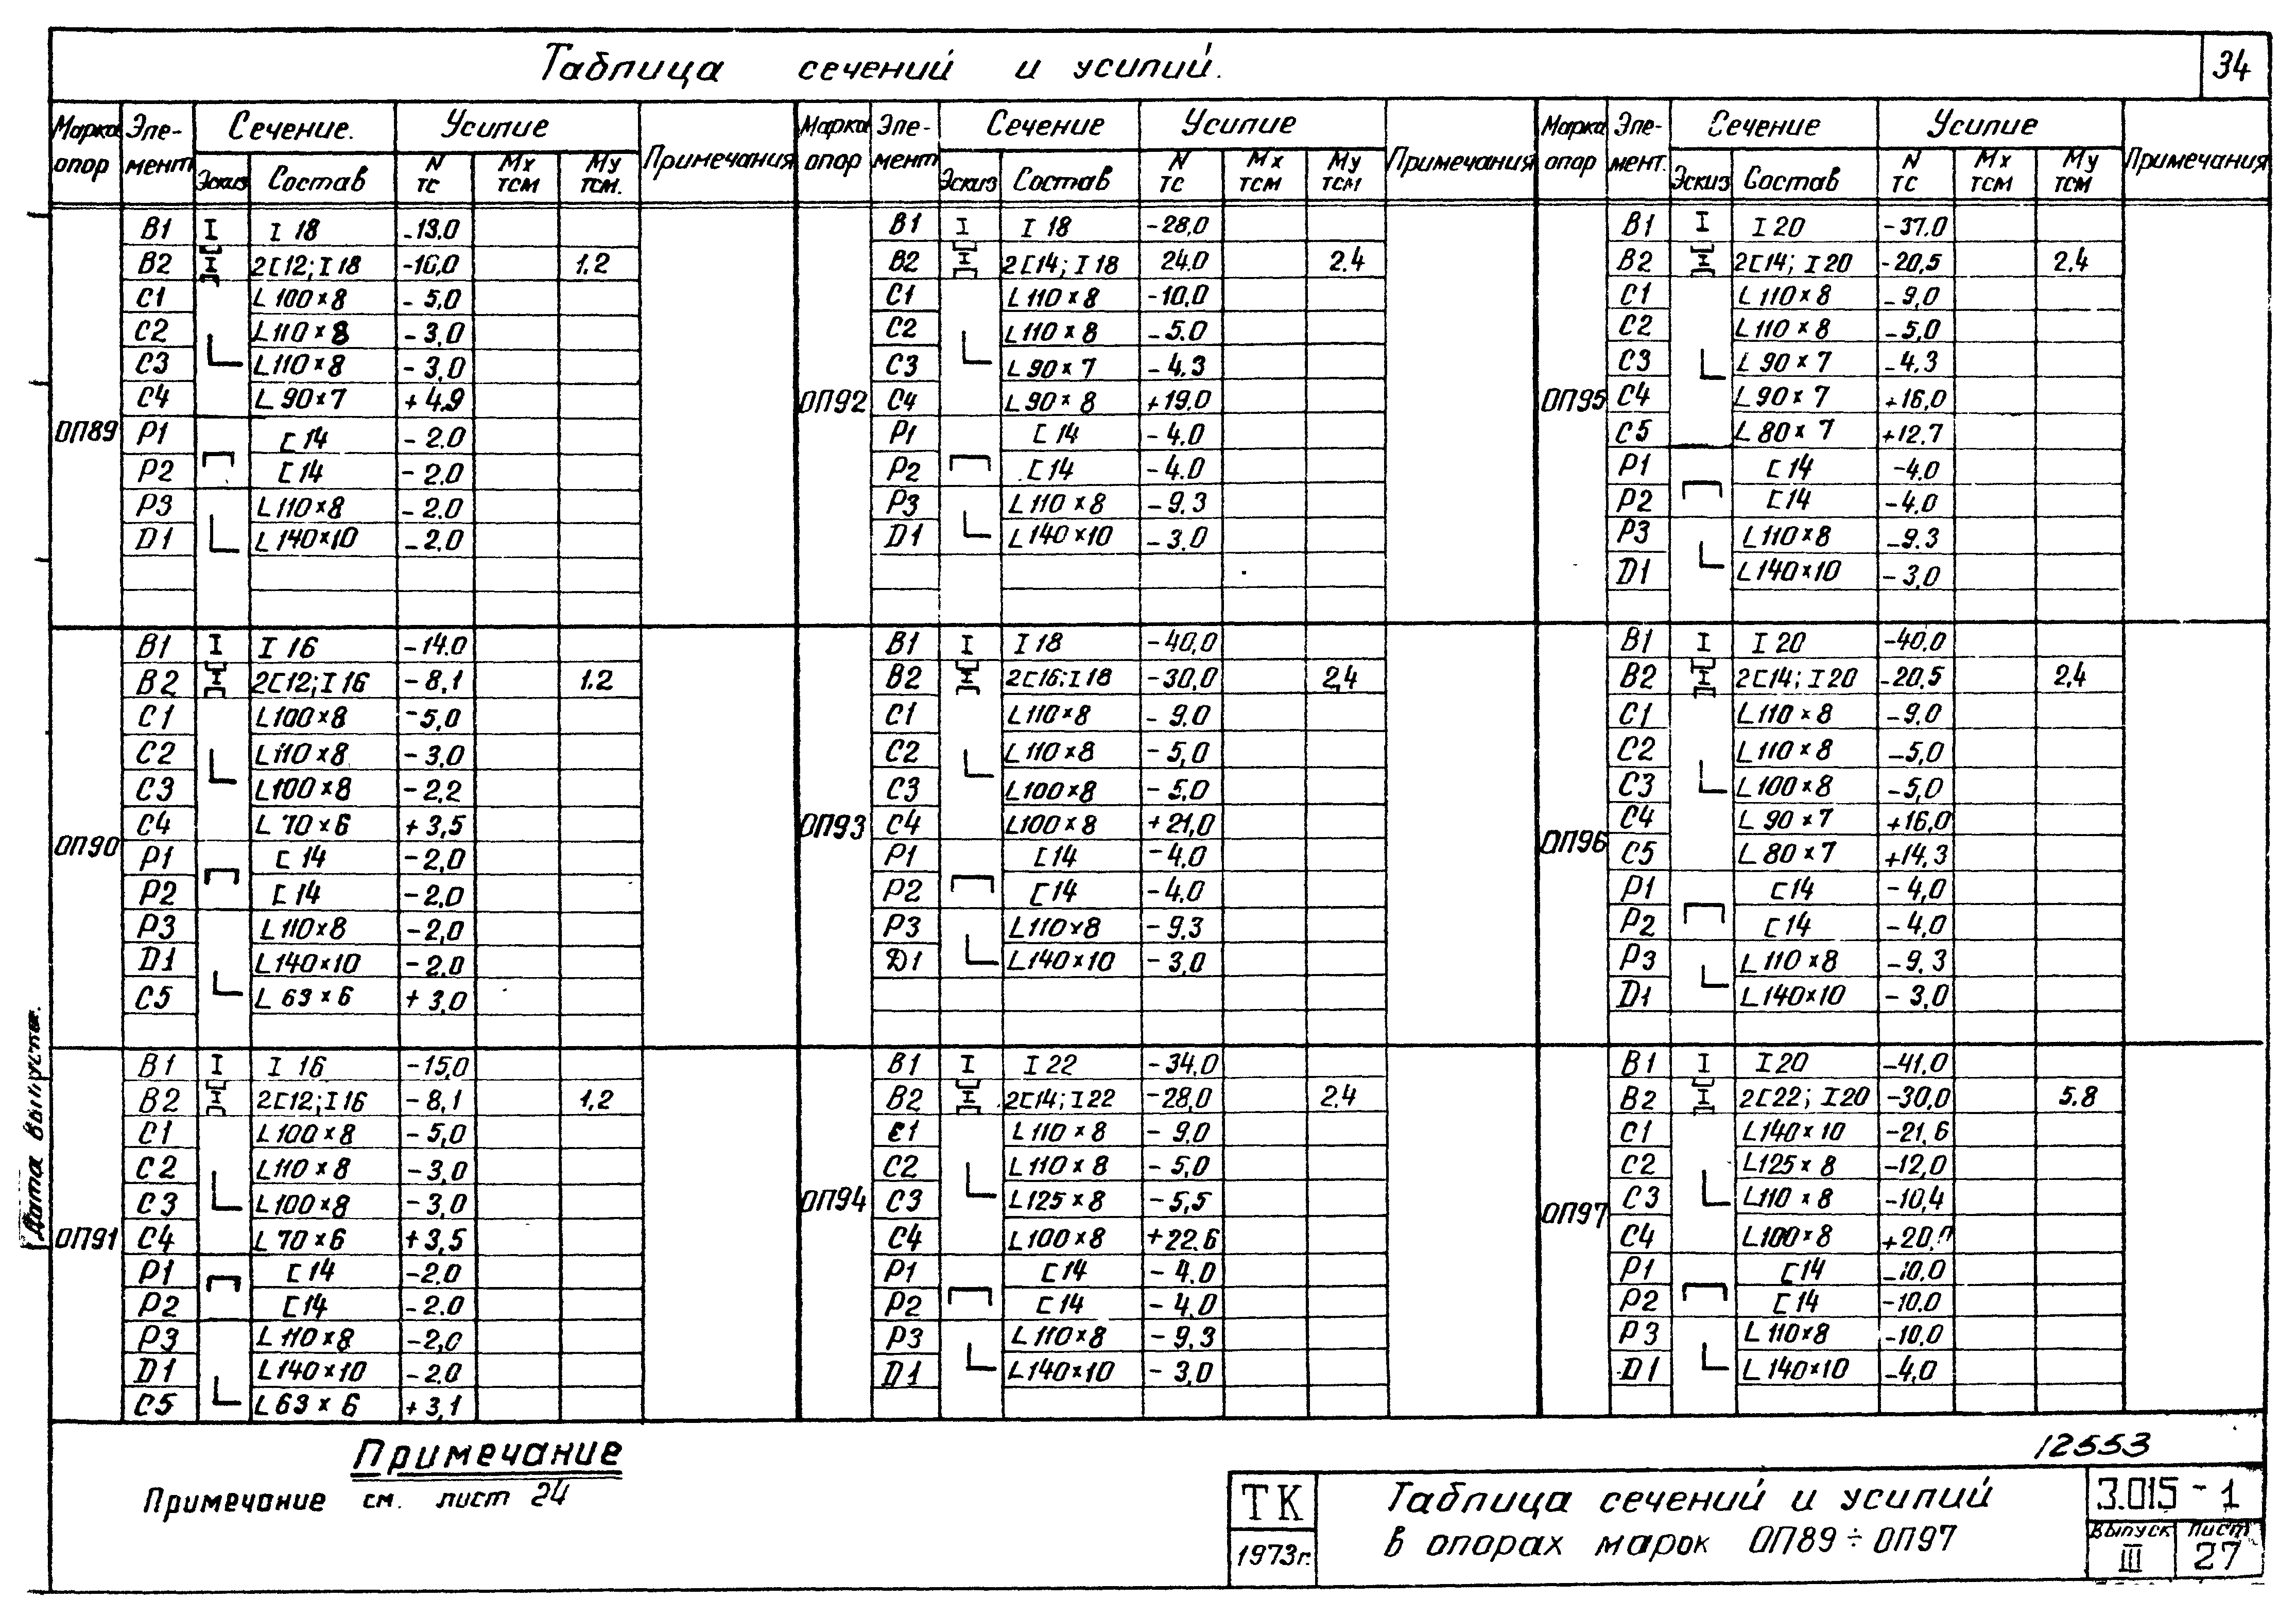 Таблица сечений и усилий.
34
Марка опор Эле-мент Сечение. Усилие Примечания Марка опор Эле-мент Сечение Усилие Примечания Марка опор Эле-мент. Сечение Усилие Примечания
Эскиз Состав N тс Mx тсм My тсм. Эскиз Состав N тс Mx тсм My тсм Эскиз Состав N тс Mx тсм My тсм
ОП89
В1 I I 18 -13,0
В2 2[12; I 18 -16,0 1.2
С1 L 100×8 - 5,0
С2 L 110×8 - 3,0
С3 L 110×8 - 3,0
С4 L 90×7 + 4.9
Р1 [ 14 - 2.0
Р2 [ 14 - 2.0
Р3 L 110×8 - 2.0
D1 L 140×10 - 2.0
ОП90
В1 I I 16 -14.0
В2 2[12; I 16 - 8,1 1.2
С1 L 100×8 -5,0
С2 L 110×8 - 3,0
С3 L 100×8 - 2,2
С4 L 70×6 + 3,5
Р1 [ 14 - 2,0
Р2 [ 14 - 2,0
Р3 L 110×8 - 2,0
D1 L 140×10 - 2.0
С5 L 63×6 + 3,0
ОП91
В1 I I 16 -15,0
В2 2[12; I 16 - 8,1 1,2
С1 L 100×8 - 5,0
С2 L 110×8 - 3,0
С3 L 100×8 - 3,0
С4 L 70×6 + 3,5
Р1 [ 14 -2.0
Р2 [ 14 -2.0
Р3 L 110×8 -2,0
D1 L 140×10 -2.0
С5 L 63×6 + 3,1
ОП92
В1 I I 18 -28,0
В2 2[14; I 18 24.0 2.4
С1 L 110×8 -10,0
С2 L 110×8 -5.0
С3 L 90×7 - 4.3
С4 L 90×8 +19.0
Р1 [ 14 - 4.0
Р2 [ 14 - 4.0
Р3 L 110×8 - 9.3
D1 L 140×10 - 3.0
ОП93
В1 I I 18 -40,0
В2 2[16; I 18 -30,0 2,4
С1 L 110×8 - 9.0
С2 L 110×8 - 5,0
С3 L 100×8 - 5,0
С4 L 100×8 + 21,0
Р1 [ 14 - 4,0
Р2 [ 14 - 4,0
Р3 L 110×8 - 9.3
D1 L 140×10 - 3,0
ОП94
В1 I I 22 -34,0
В2 2[14; I 22 -28,0 2.4
С1 L 110×8 - 9,0
С2 L 110×8 - 5,0
С3 L 125×8 - 5,5
С4 L 100×8 + 22.6
Р1 [ 14 - 4.0
Р2 [ 14 - 4,0
Р3 L 110×8 - 9,3
D1 L 140×10 - 3,0
ОП95
В1 I I 20 -37.0
В2 2[14; I 20 -20,5 2.4
С1 L 110×8 - 9,0
С2 L 110×8 -5,0
С3 L 90×7 -4.3
С4 L 90×7 +16,0
С5 L 80×7 +12.7
Р1 [ 14 -4.0
Р2 [ 14 -4,0
Р3 L 110×8 -9.3
D1 L 140×10 - 3,0
ОП96
В1 I I 20 -40.0
В2 2[14; I 20 -20,5 2,4
С1 L 110×8 -9,0
С2 L 110×8 -5,0
С3 L 100×8 -5,0
С4 L 90×7 +16,0
С5 L 80×7 +14,3
Р1 [ 14 - 4,0
Р2 [ 14 - 4,0
Р3 L 110×8 -9,3
D1 L 140×10 - 3,0
ОП97
В1 I I 20 -41.0
В2 2[22; I 20 -30,0 5.8
С1 L 140×10 -21,6
С2 L 125×8 -12,0
С3 L 110×8 -10,4
С4 L 100×8
Р1 [ 14 -10,0
Р2 [ 14 -10.0
Р3 L 110×8 -10,0
D1 L 140×10 -4,0
Дата выпуска.
Примечание
Примечание см. лист 24
12553
ТК
1973г.
Таблица сечений и усилий
в опорах марок ОП89÷ОП97
3.015-1
Выпуск Лист
III 27